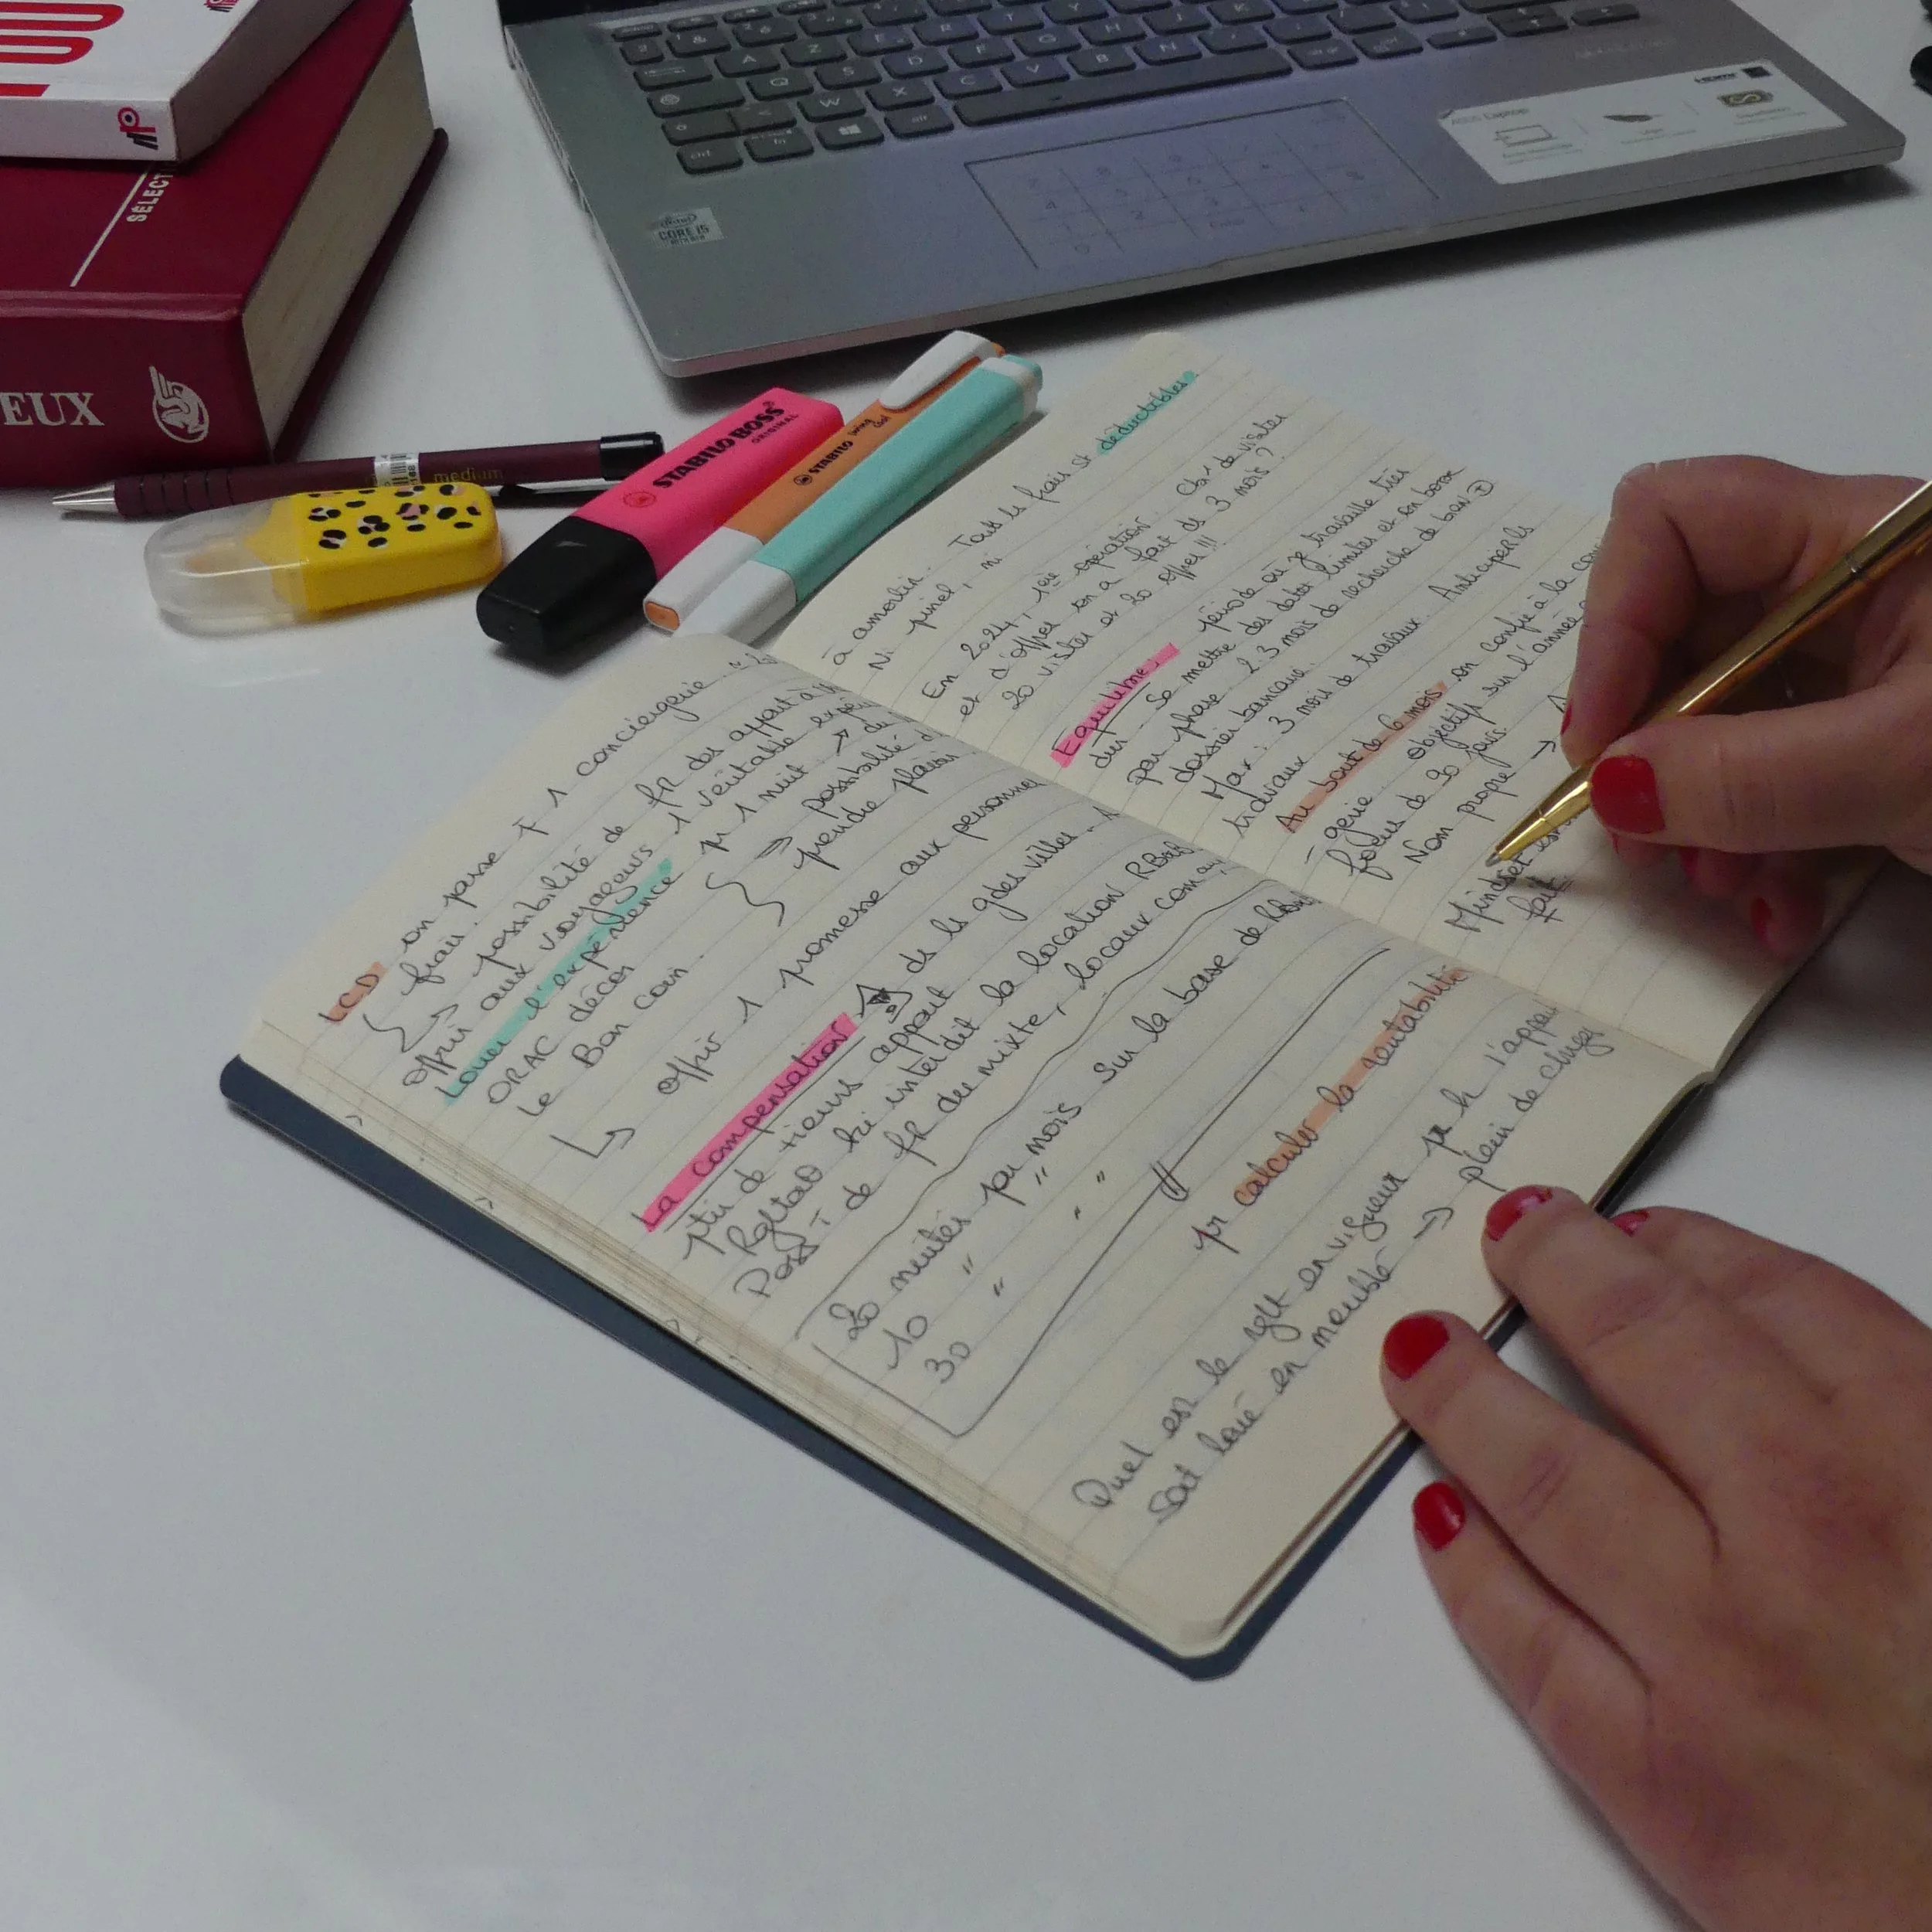 SÉLECT
EUX
medium
STABILO BOSS
ORIGINAL
STABILO swing cool
intel
CORE i5
ASUS Laptop
HDMI
LCD on passe 1 conciergerie
frais.
possibilité de des appart à
offrir aux voyageurs 1 véritable expé
Louer l'expérience pr 1 nuit
ORAC décor possibilité d
Le Bon Coin. prendre plaisir
offrir 1 promesse aux personnes
La compensation ds ls gdes villes
de tiers appart
interdit la location RBnB
Posst de du mixte, locaux com
20 nuités par mois sur la base de RBnB
10 " "
30 " "
pr calculer la rentabilité
Quel est le rglt en vigueur pr k l'appar
soit loué en meublé → plein de chges
à amortir. Tous ls frais st déductibles
Ni pinel, ni
En 2024, 1ère opération. Cb de visites
et d'offres on a fait ds 3 mois ?
20 visites et 20 offres !!!
Equilibre : période où je travaille très
dur - Se mettre des dates limites et en bosse
par phase. 2.3 mois de recherche de bien
dossier bancaire.
Max : 3 mois de travaux. Anticiper ls
travaux
Au bout de 6 mois on confie à la con
gerie. Objectifs sur l'année
focus de 90 jours
Nom propre →
Mindset
fait.